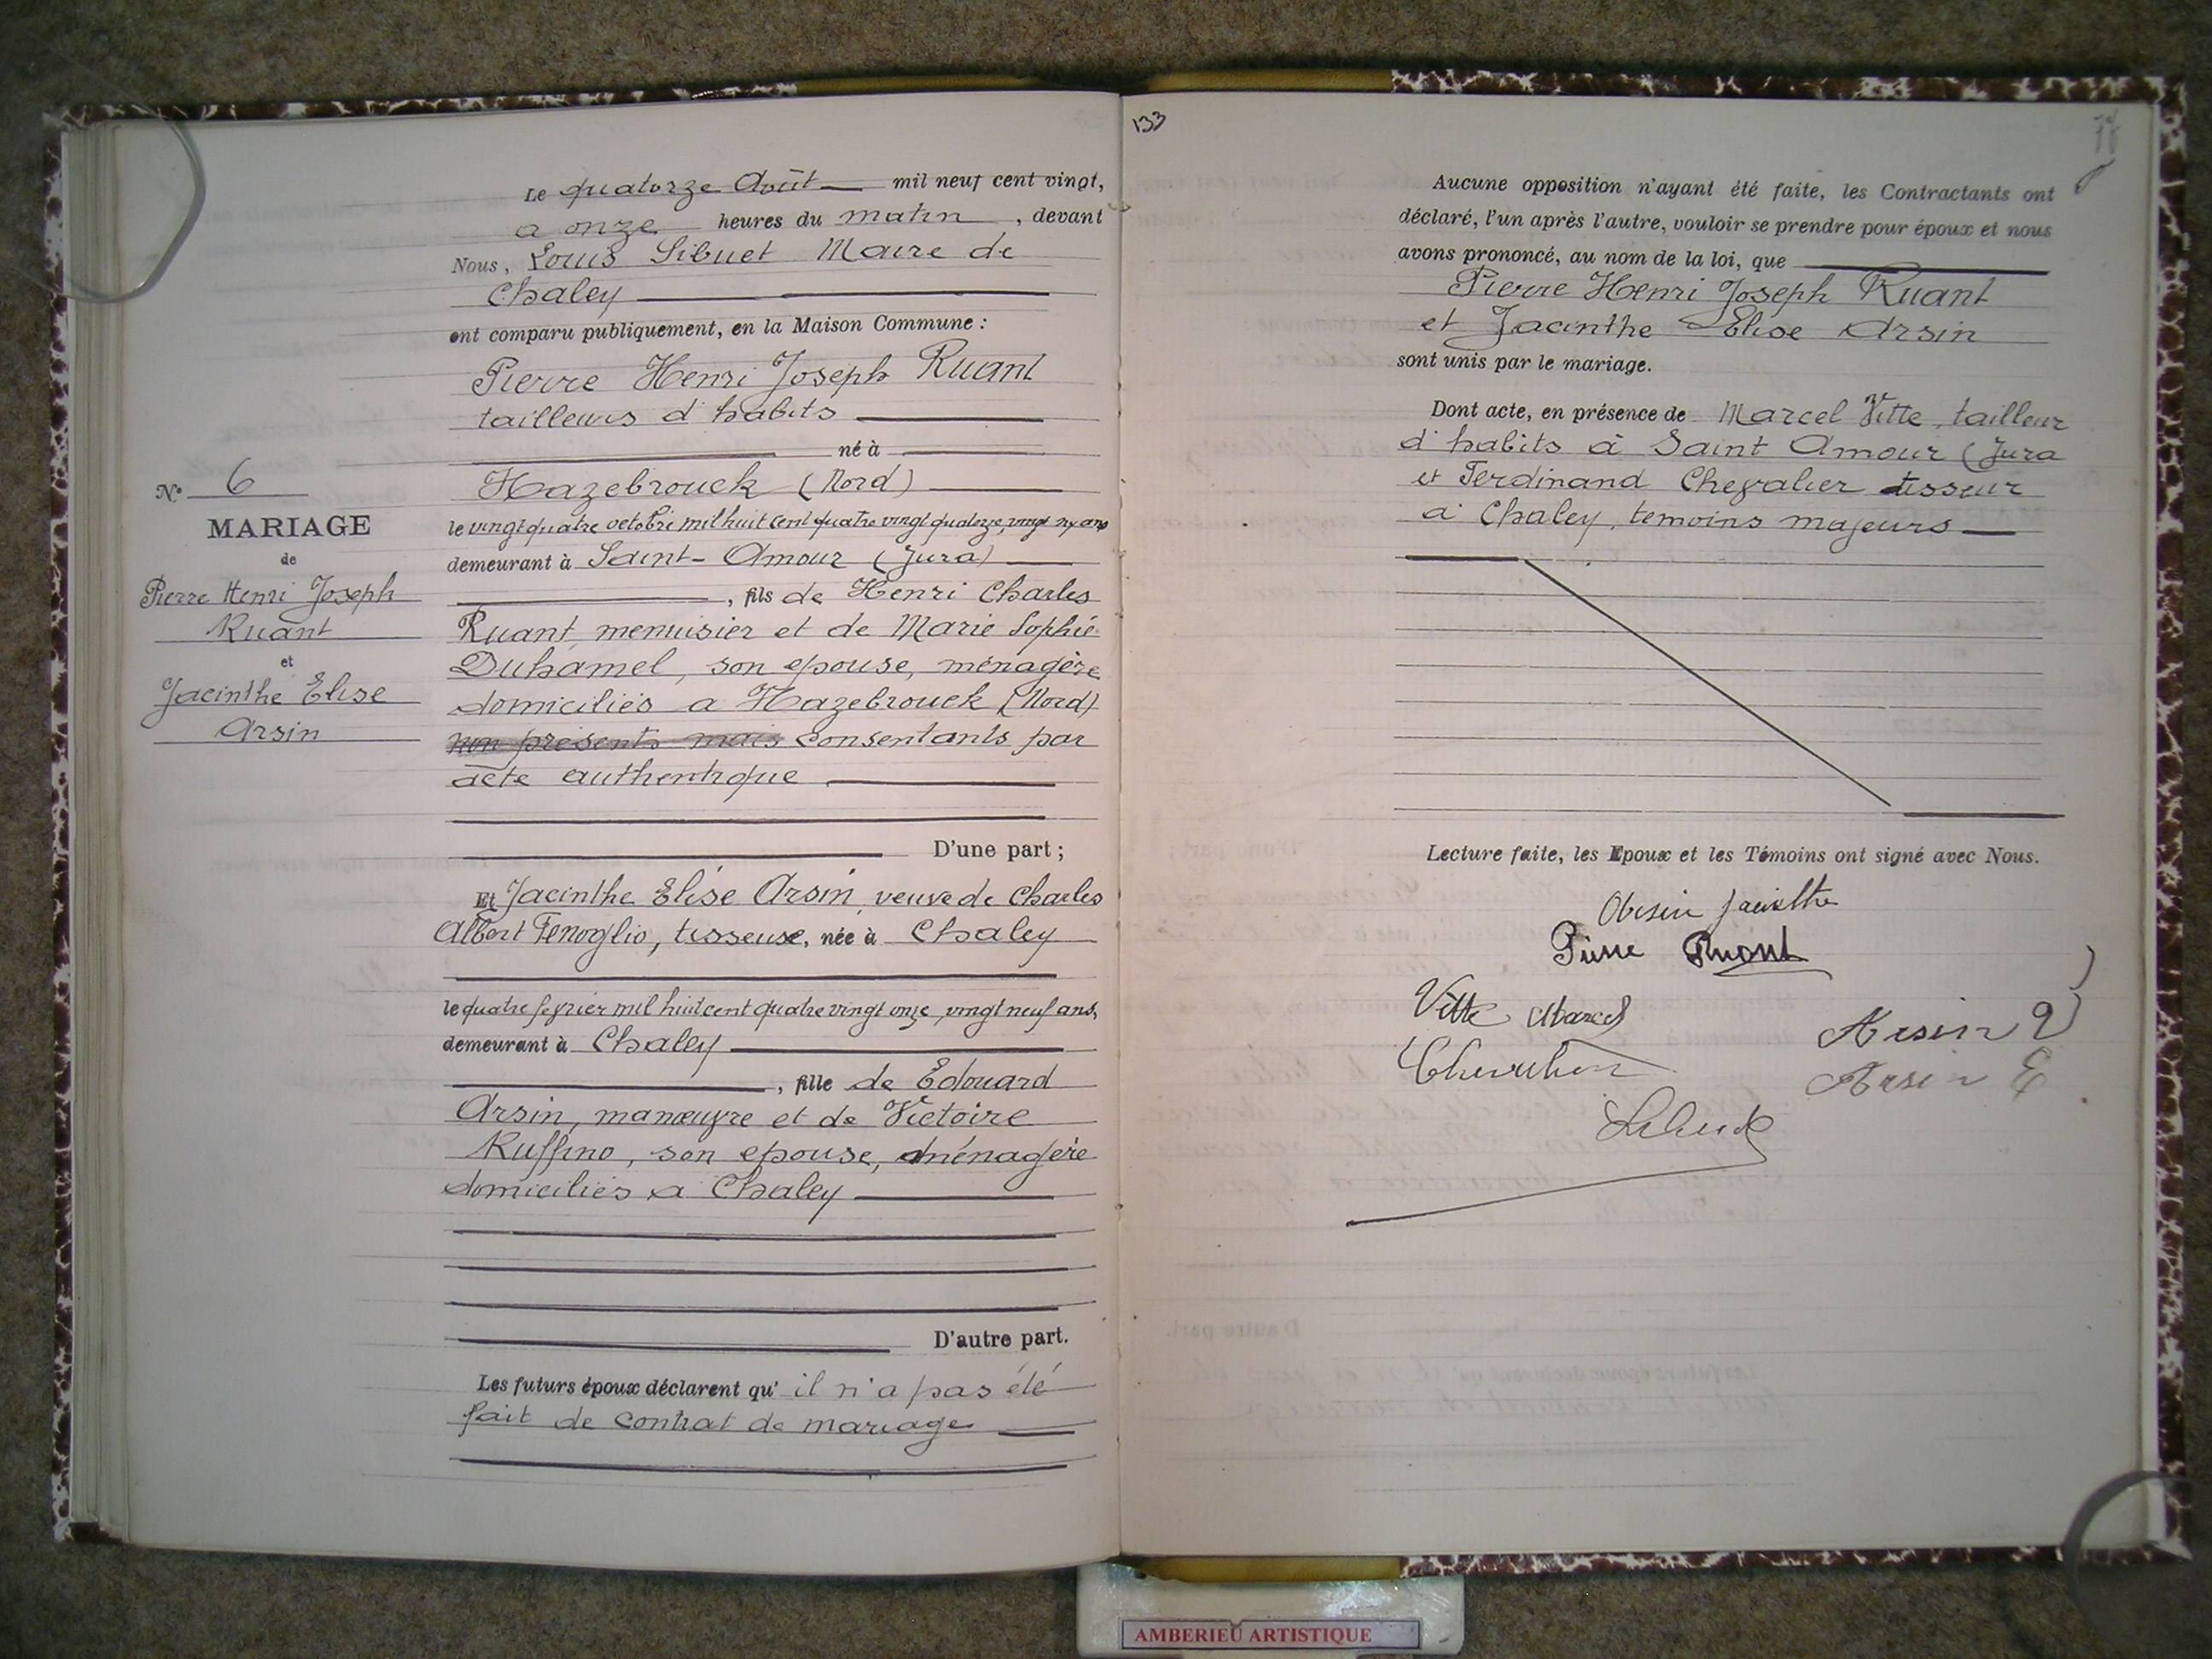 Le quatorze Août mil neuf cent vingt,
a onze heures du matin, devant
Nous, Louis Sibuet Maire de
Chaley
ont comparu publiquement, en la Maison Commune :
Pierre Henri Joseph Ruant
tailleurs d'habits
né à
Hazebrouck (Nord)
le vingt quatre octobre mil huit cent quatre vingt quatorze, vingt six ans
demeurant à Saint-Amour (Jura)
, fils de Henri Charles
Ruant, menuisier et de Marie Sophie
Duhamel, son epouse, ménagère
domiciliés a Hazebrouck (Nord)
non présents mais consentants par
acte authentique
D'une part ;
Et Jacinthe Elise Arsin, veuve de Charles
Albert Fenoglio, tisseuse, née à Chaley
le quatre fevrier mil huit cent quatre vingt onze, vingt neuf ans,
demeurant à Chaley
, fille de Edouard
Arsin, manœuvre et de Victoire
Ruffino, son epouse, ménagère
domiciliés a Chaley
D'autre part.
Les futurs époux déclarent qu' il n'a pas été
fait de contrat de mariage
N° 6
MARIAGE
de
Pierre Henri Joseph
Ruant
et
Jacinthe Elise
Arsin
133
Aucune opposition n'ayant été faite, les Contractants ont
déclaré, l'un après l'autre, vouloir se prendre pour époux et nous
avons prononcé, au nom de la loi, que
Pierre Henri Joseph Ruant
et Jacinthe Elise Arsin
sont unis par le mariage.
Dont acte, en présence de Marcel Vitte, tailleur
d'habits à Saint Amour (Jura
et Ferdinand Chevalier tisseur
a Chaley, temoins majeurs
Lecture faite, les Epoux et les Témoins ont signé avec Nous.
Arsin Jacinthe
Pierre Ruant
Vitte Marcel
Arsin
Chevalier
Arsin E
Sibuet
AMBERIEU ARTISTIQUE